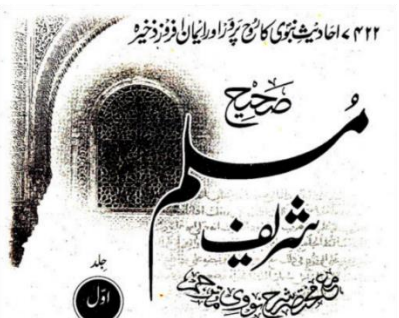 ۷۴۲۲ احادیث نبوی کا روح پرور اور ایمان افروز ذخیرہ
صحیح
مسلم
شریف
جلد
اوّل
مع مختصر شرح نووی مترجم